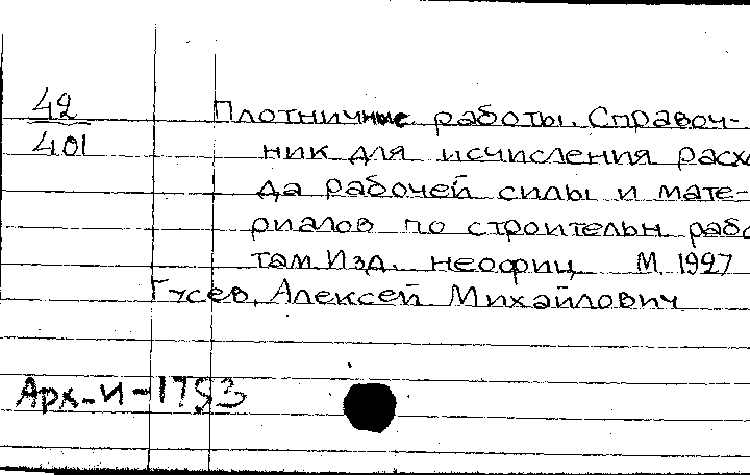 42
401
Плотничные работы. Справоч-
ник для исчисления расх
да рабочей силы и мате-
риалов по строительн рабо
там. Изд. неофиц М. 1927
Гусев, Алексей Михайлович
Арх-И-1753